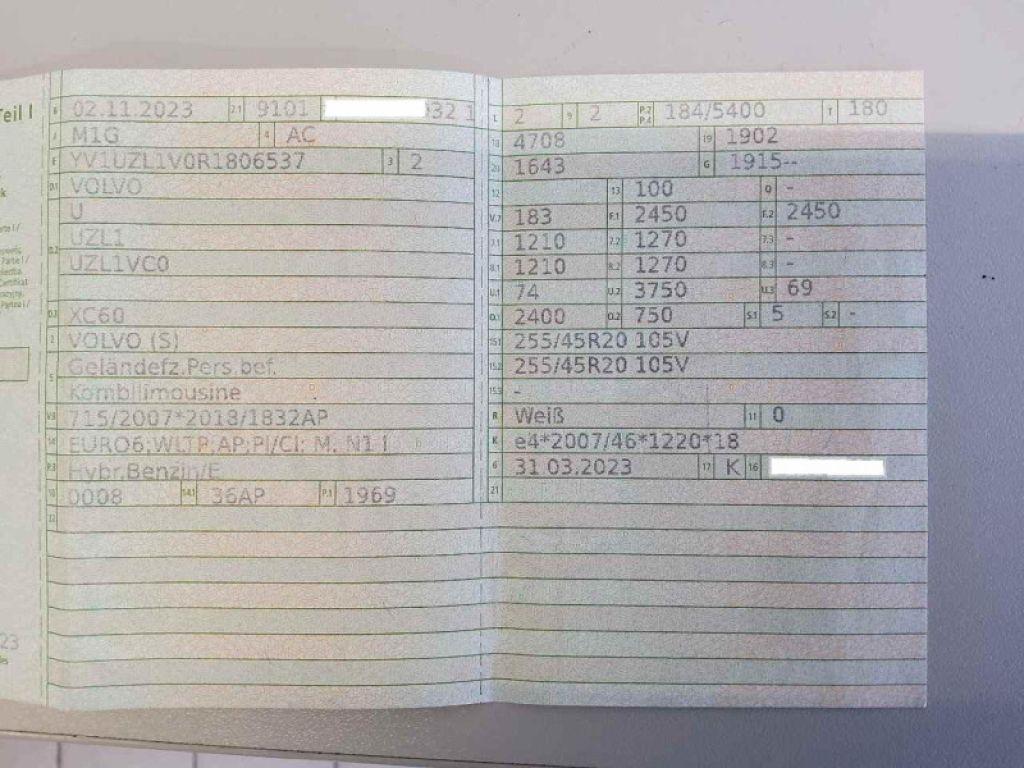 Teil I
B 02.11.2023 2.1 9101 932 1
J M1G 4 AC
E YV1UZL1V0R1806537 3 2
D.1 VOLVO
U
D.2 UZL1
UZL1VC0
D.3 XC60
2 VOLVO (S)
5 Geländefz.Pers.bef.
Kombilimousine
V.9 715/2007*2018/1832AP
14 EURO6;WLTP;AP;PI/CI; M, N1 I
P.3 Hybr.Benzin/E
10 0008 14.1 36AP P.1 1969
22
L 2 9 2 P.2 P.4 184/5400 T 180
18 4708 19 1902
20 1643 G 1915--
12 13 100 Q -
V.7 183 F.1 2450 F.2 2450
7.1 1210 7.2 1270 7.3 -
8.1 1210 8.2 1270 8.3 -
U.1 74 U.2 3750 U.3 69
O.1 2400 O.2 750 S.1 5 S.2 -
15.1 255/45R20 105V
15.2 255/45R20 105V
15.3 -
R Weiß 11 0
K e4*2007/46*1220*18
6 31.03.2023 17 K 16
21